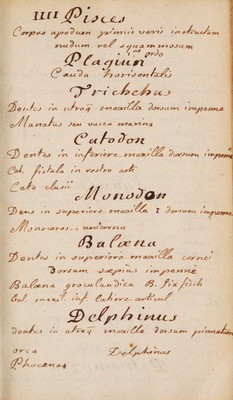 IIII Pisces
Corpus apodum pinnis veris instructum
nudum vel squammosum
Plagiuri ordo
Cauda horisontalis
Trichechus
Dentes in utraq maxilla dorsum impenne
Manatus seu vacca marina
Catodon
Dentes in inferiore maxilla dorsum impenne
Cot. fistula in rostro arti
Cete clusii
Monodon
Dens in superiore maxilla 1 dorsum impenne
Monoceros unicornu
Balæna
Dentes in superiore maxilla cornei
dorsum sæpius impenne
Balæna groenlandica B. finfisch
Bal. maxil. inf. latiore
Delphinus
dentes in utraq maxilla dorsum pinnatum
orca Delphinus
Phocæna